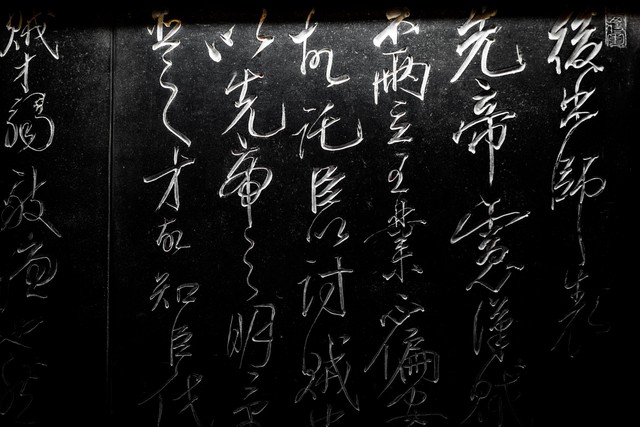 後出師表
先帝慮漢賊
不兩立王業不偏安
故託臣以討賊也
以先帝之明量
臣之才故知臣伐
賊才弱敵彊也